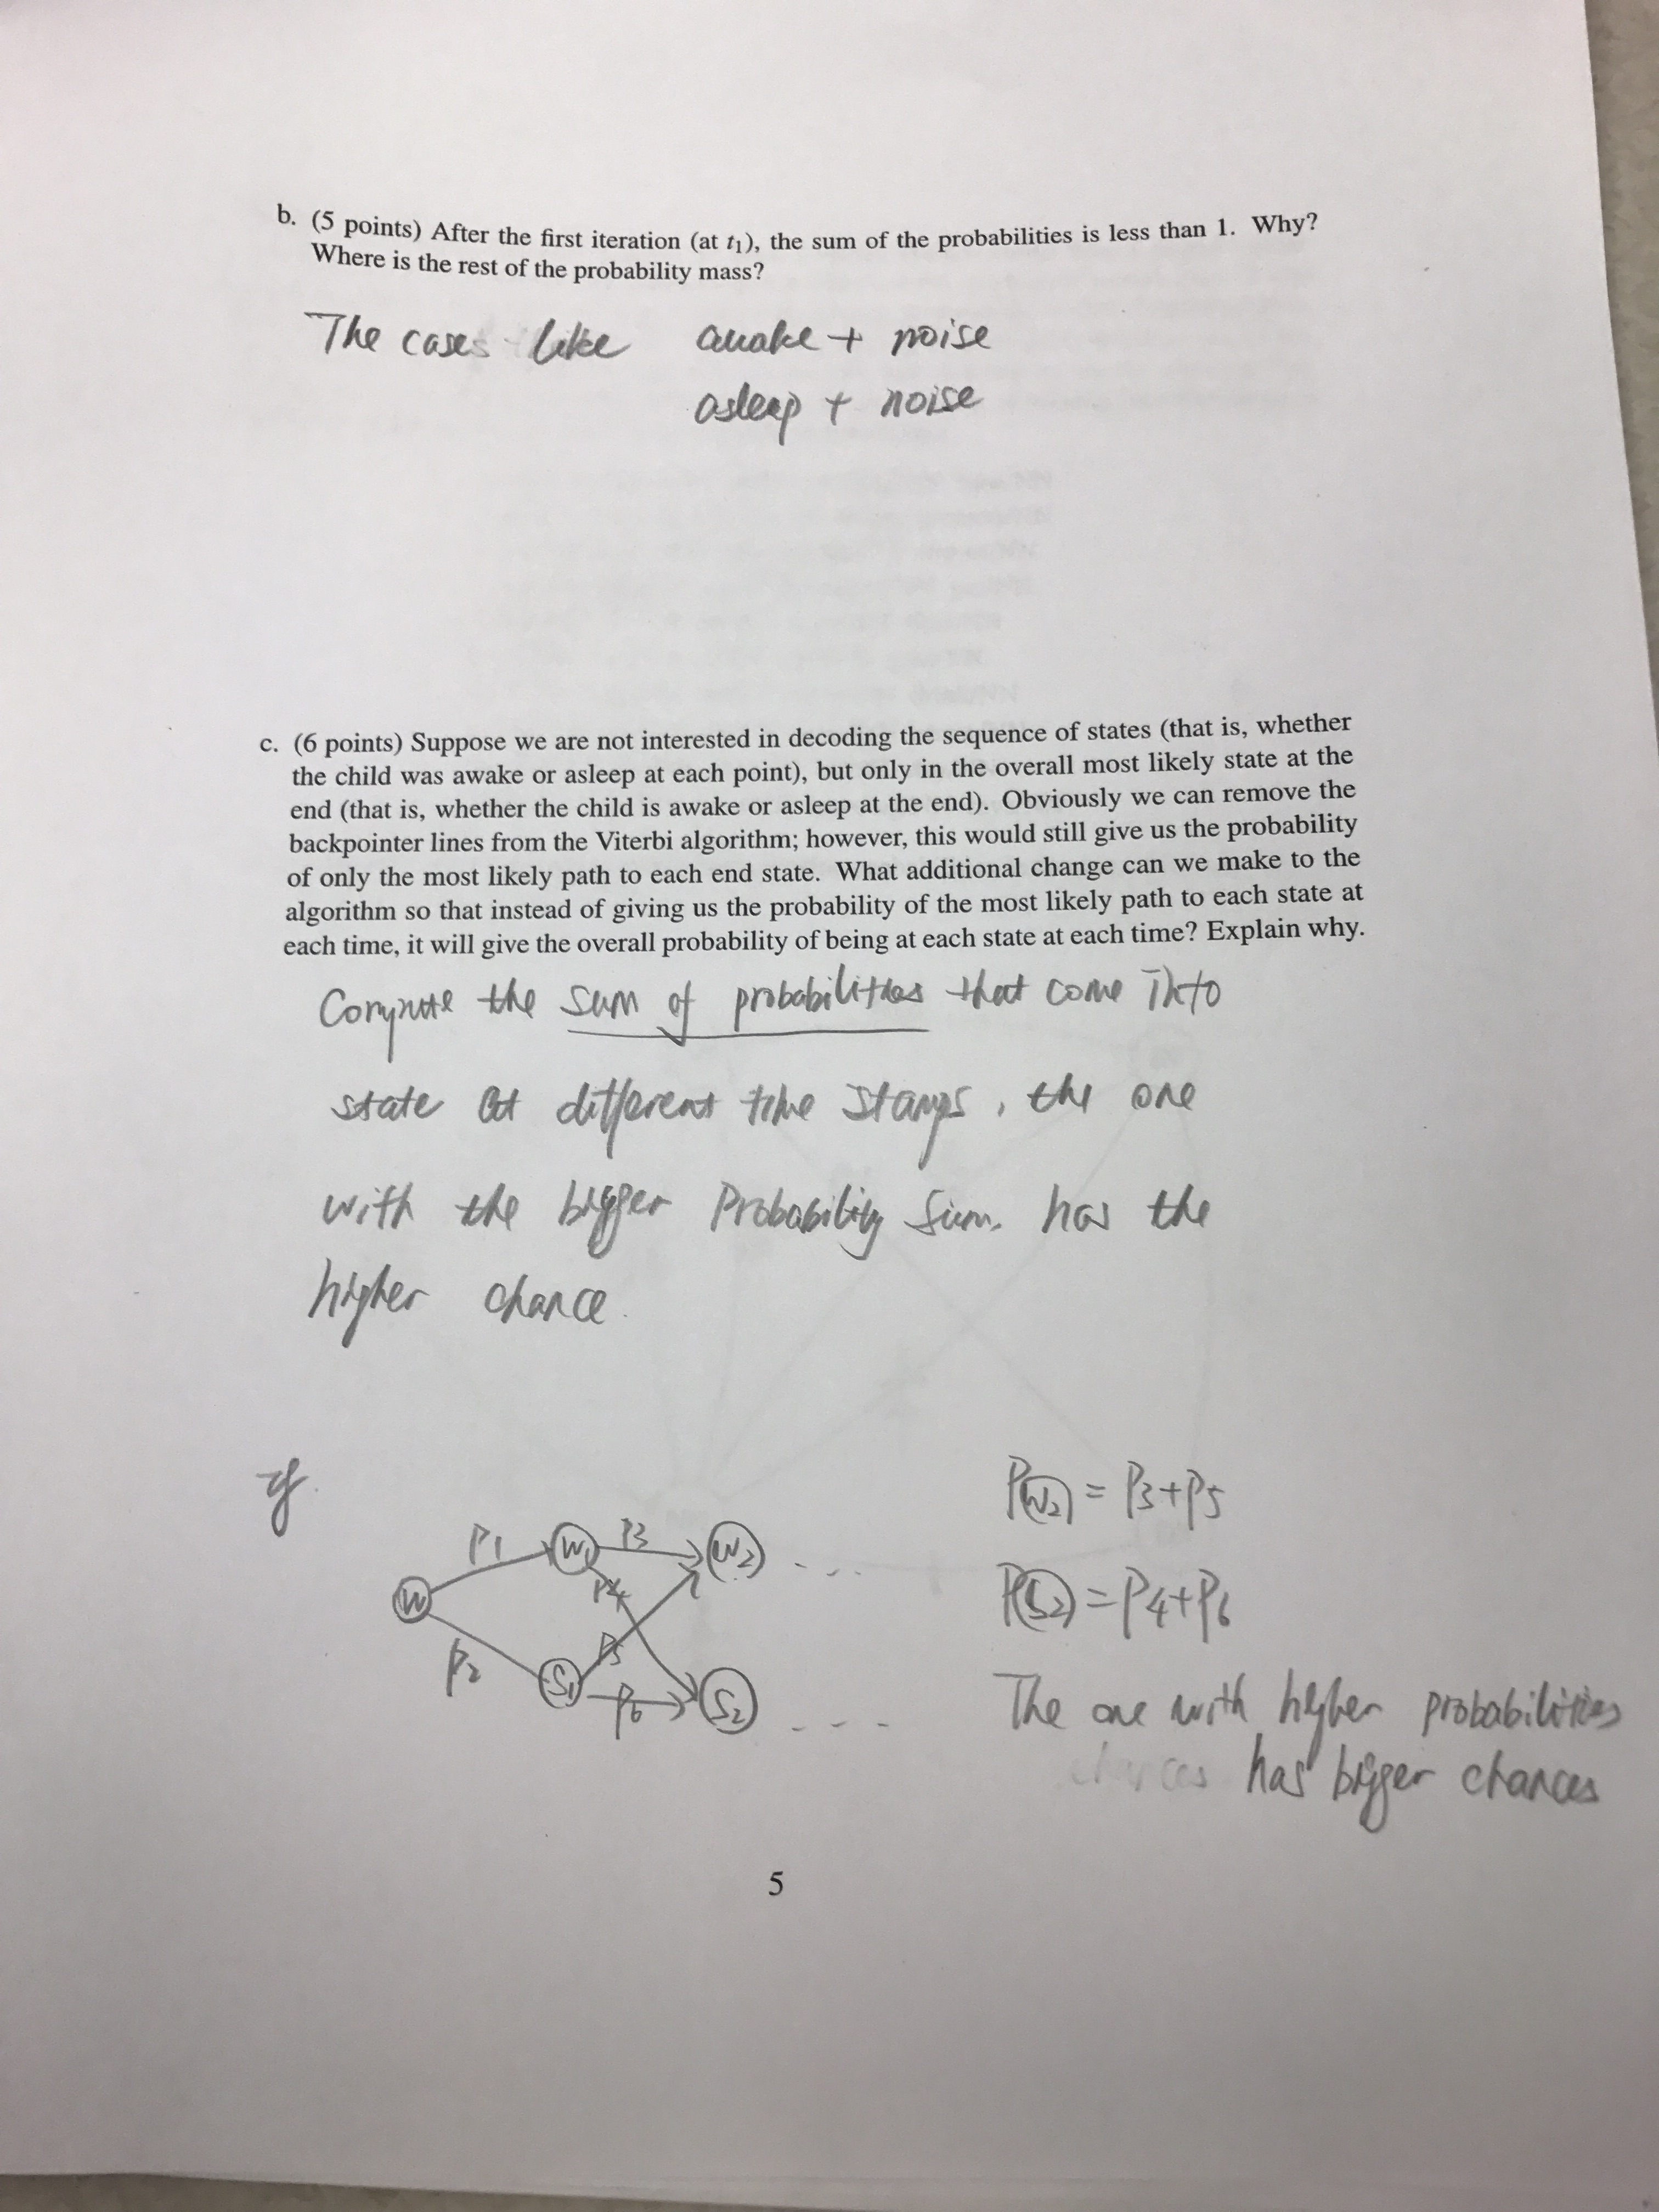 b. (5 points) After the first iteration (at t1), the sum of the probabilities is less than 1. Why?
Where is the rest of the probability mass?
The cases like awake + noise
asleep + noise
c. (6 points) Suppose we are not interested in decoding the sequence of states (that is, whether
the child was awake or asleep at each point), but only in the overall most likely state at the
end (that is, whether the child is awake or asleep at the end). Obviously we can remove the
backpointer lines from the Viterbi algorithm; however, this would still give us the probability
of only the most likely path to each end state. What additional change can we make to the
algorithm so that instead of giving us the probability of the most likely path to each state at
each time, it will give the overall probability of being at each state at each time? Explain why.
Compute the sum of probabilities that come into
state at different time stamps, the one
with the bigger Probability Sum. has the
higher chance.
W P1 W1 P3 W2 ...
P4
P5
P2 S1 P6 S2 ---
P(W2) = P3+P5
P(S2) = P4+P6
The one with higher probabilities
chances has bigger chances
5